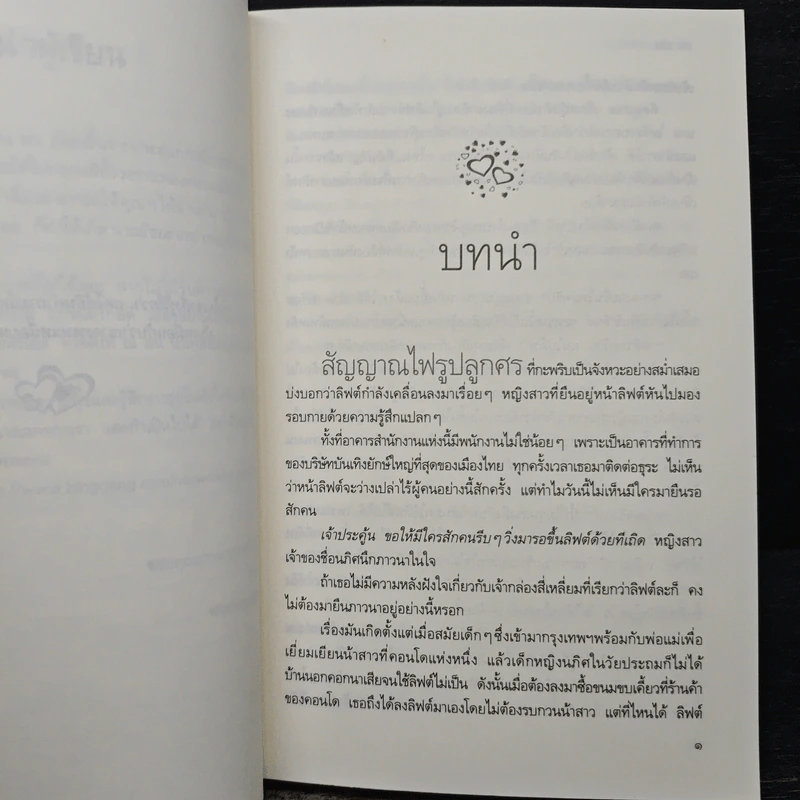 บทนำ
สัญญาณไฟรูปลูกศร ที่กะพริบเป็นจังหวะอย่างสม่ำเสมอ
บ่งบอกว่าลิฟต์กำลังเคลื่อนลงมาเรื่อยๆ หญิงสาวที่ยืนอยู่หน้าลิฟต์หันไปมอง
รอบกายด้วยความรู้สึกแปลกๆ
ทั้งที่อาคารสำนักงานแห่งนี้มีพนักงานไม่ใช่น้อยๆ เพราะเป็นอาคารที่ทำการ
ของบริษัทบันเทิงยักษ์ใหญ่ที่สุดของเมืองไทย ทุกครั้งเวลาเธอมาติดต่อธุระ ไม่เห็น
ว่าหน้าลิฟต์จะว่างเปล่าไร้ผู้คนอย่างนี้สักครั้ง แต่ทำไมวันนี้ไม่เห็นมีใครมายืนรอ
สักคน
เจ้าประคู้น ขอให้มีใครสักคนรีบๆ วิ่งมารอขึ้นลิฟต์ด้วยทีเถิด หญิงสาว
เจ้าของชื่อนภิศนึกภาวนาในใจ
ถ้าเธอไม่มีความหลังฝังใจเกี่ยวกับเจ้ากล่องสี่เหลี่ยมที่เรียกว่าลิฟต์ละก็ คง
ไม่ต้องมายืนภาวนาอยู่อย่างนี้หรอก
เรื่องมันเกิดตั้งแต่เมื่อสมัยเด็กๆ ซึ่งเข้ามากรุงเทพฯพร้อมกับพ่อแม่เพื่อ
เยี่ยมเยียนน้าสาวที่คอนโดแห่งหนึ่ง แล้วเด็กหญิงนภิศในวัยประถมก็ไม่ได้
บ้านนอกคอกนาเสียจนใช้ลิฟต์ไม่เป็น ดังนั้นเมื่อต้องลงมาซื้อขนมขบเคี้ยวที่ร้านค้า
ของคอนโด เธอถึงได้ลงลิฟต์มาเองโดยไม่ต้องรบกวนน้าสาว แต่ที่ไหนได้ ลิฟต์
๑